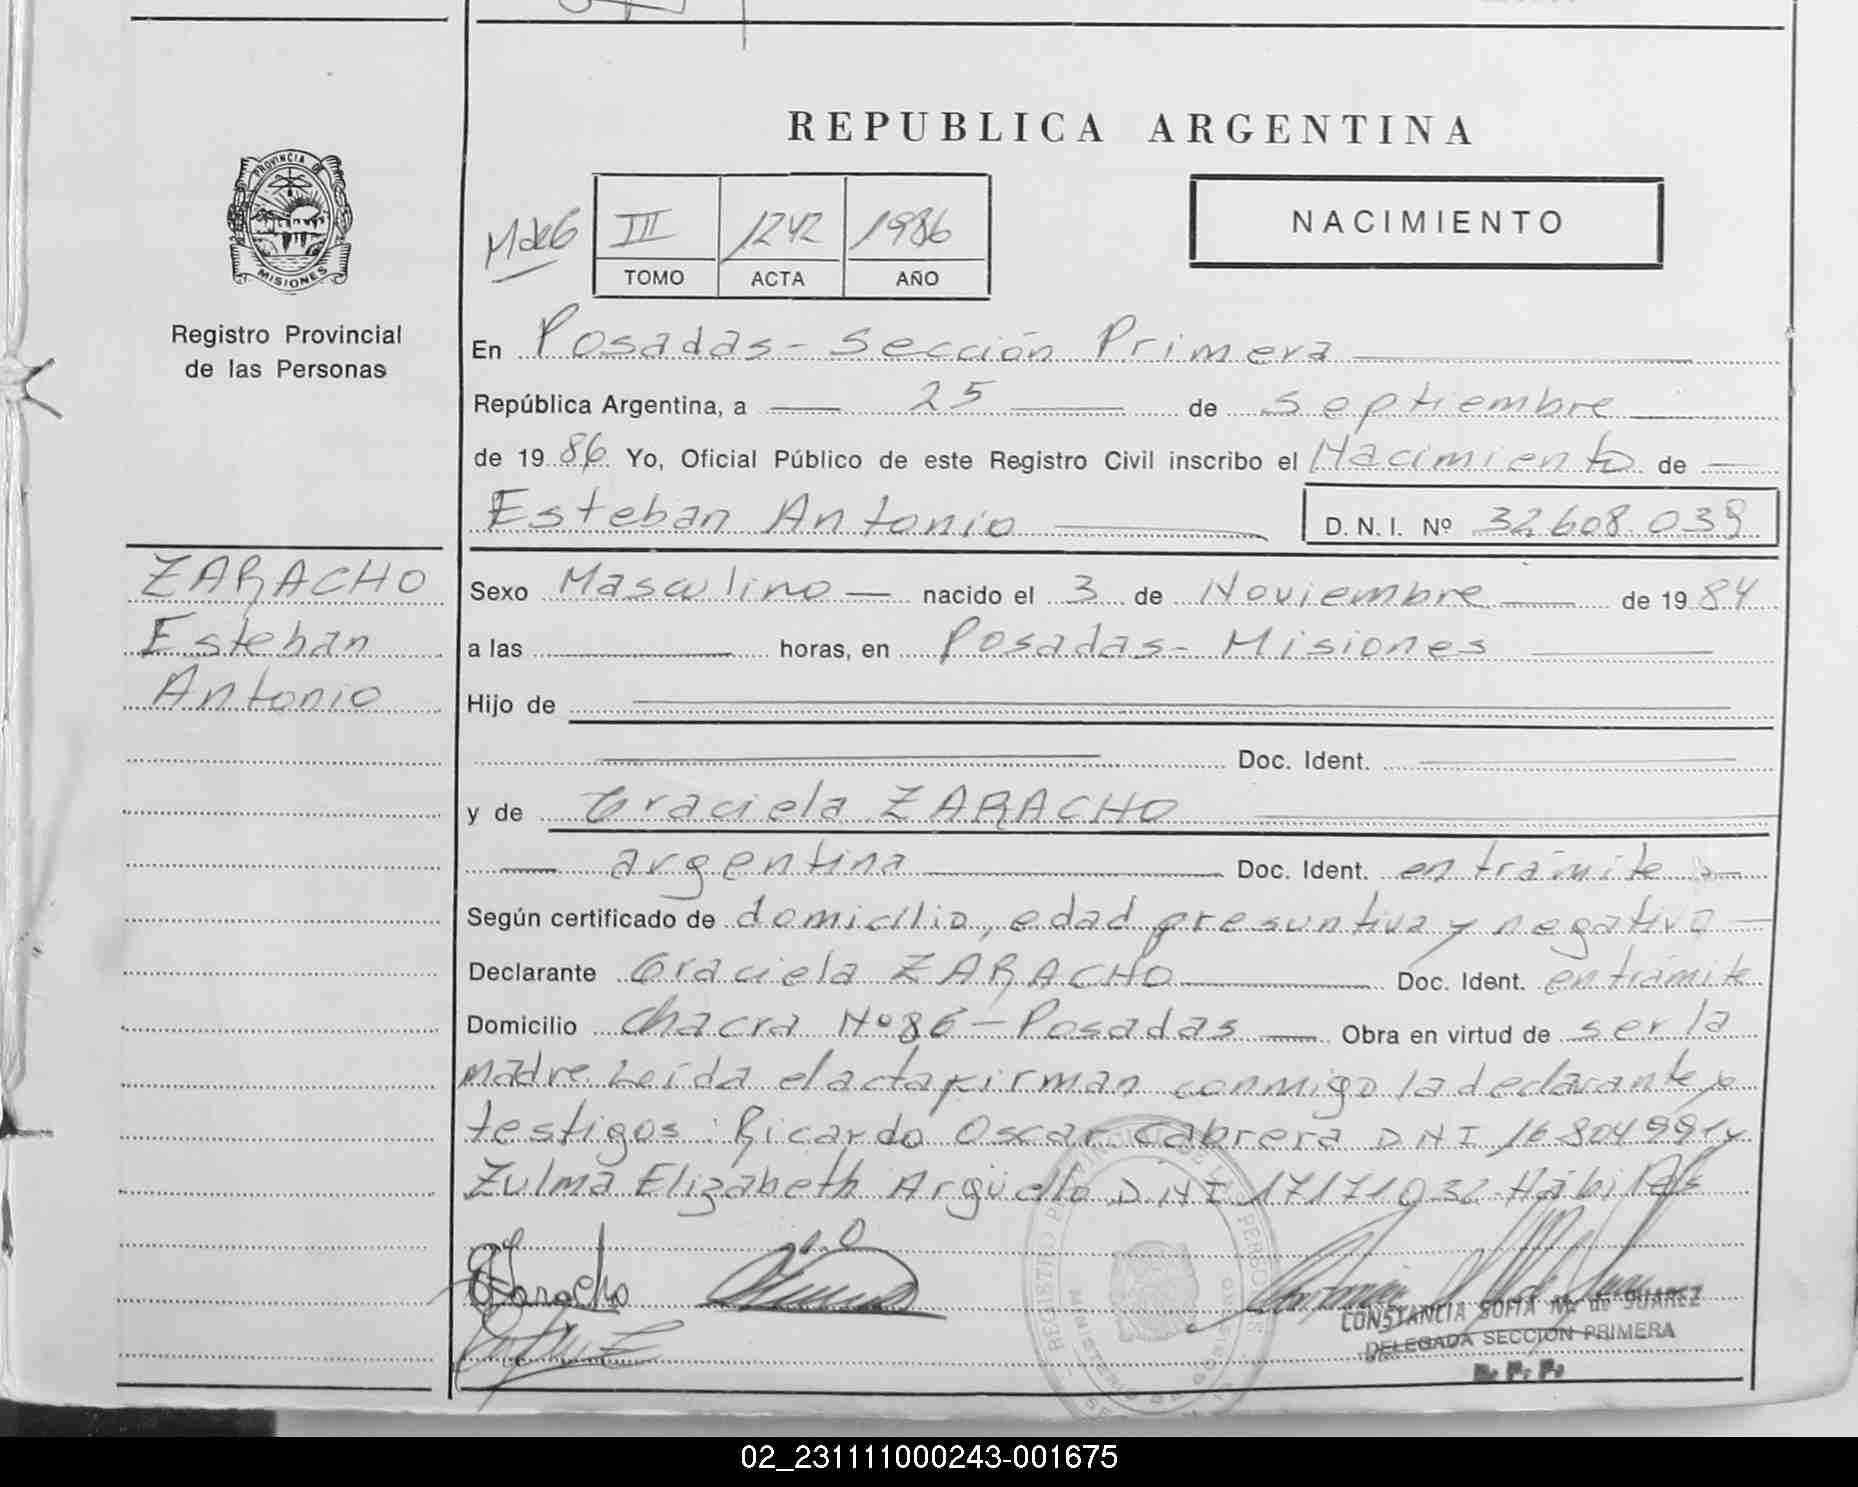 REPUBLICA ARGENTINA
PROVINCIA DE
MISIONES
Registro Provincial
de las Personas
MdeG
III 1242 1986
TOMO ACTA AÑO
NACIMIENTO
En Posadas - Sección Primera
República Argentina, a 25 de septiembre
de 1986 Yo, Oficial Público de este Registro Civil inscribo el Nacimiento de
Esteban Antonio D.N.I. Nº 32.608.039
ZARACHO
Esteban
Antonio
Sexo Masculino nacido el 3 de Noviembre de 1984
a las horas, en Posadas - Misiones
Hijo de
Doc. Ident.
y de Graciela ZARACHO
argentina Doc. Ident. en trámite
Según certificado de domicilio, edad presuntiva y negativo
Declarante Graciela ZARACHO Doc. Ident. en trámite
Domicilio Chacra Nº 86 - Posadas Obra en virtud de ser la
madre. Leída el acta firman conmigo la declarante y
testigos: Ricardo Oscar Cabrera DNI 16804991 y
Zulma Elizabeth Argüello DNI 17171032 - Hábiles
G Zaracho
CONSTANCIA SOFIA de SUAREZ
DELEGADA SECCION PRIMERA
R. P. P.
02_231111000243-001675